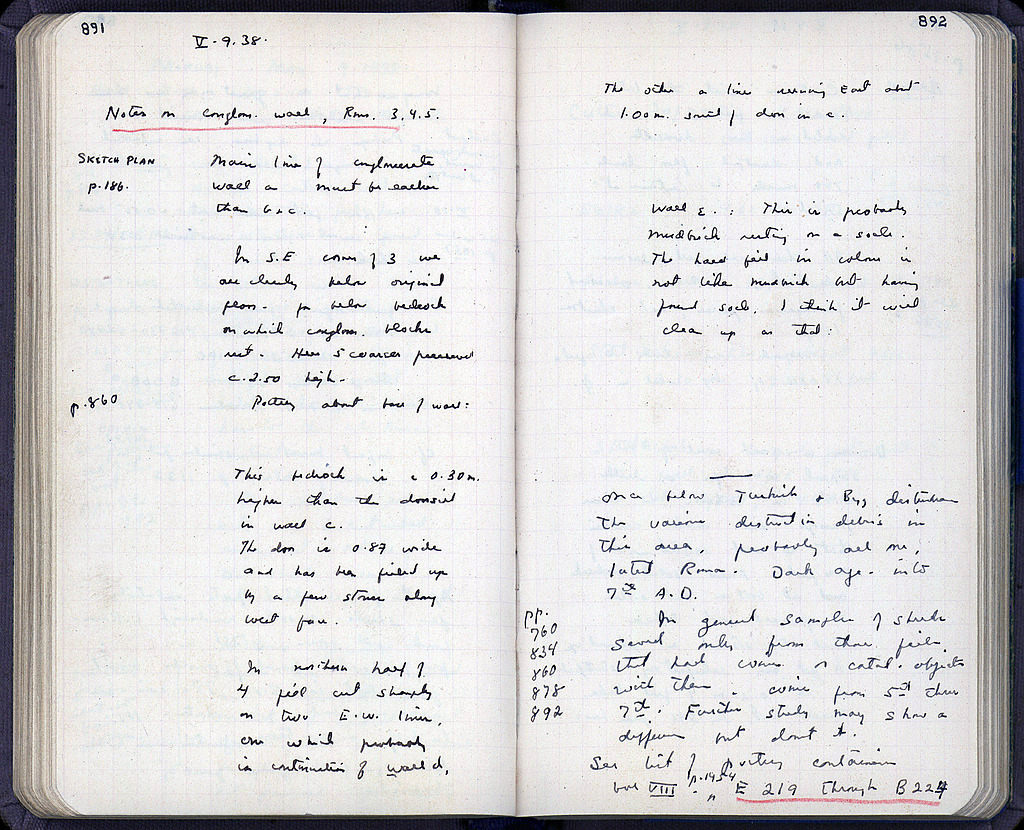 891
V.9.38.
Notes on conglom. wall, Rms. 3.4.5.
SKETCH PLAN
p.186.
Main line of conglomerate
wall a must be earlier
than b & c.
In S.E corner of 3 we
are clearly below original
floor. for below bedrock
on which conglom. blocks
rest. Here 5 courses preserved
c. 2.50 high.
p.860
Pottery about base of wall:
This bedrock is c 0.30 m.
higher than the doorsill
in wall c.
The door is 0.87 wide
and has been filled up
by a few stones along
west face.
In northern half of
4 fill cut sharply
on two E.W. lines,
one which probably
is continuation of wall d,
892
The other a line running East about
1.00 m. south of door in c.
Wall E.: This is probably
mudbrick resting on a socle.
The hard fill in colour is
not like mudbrick but having
found socle, I think it will
clean up as that:
once below Turkish & Byz disturbance
The various destruction debris in
this area, probably all one,
latest Roman - Dark age - into
7th A.D.
pp.
760
834
860
878
892
In general samples of sherds
saved only from those fills
that had coins or catal. objects
with them. coins from 5th thru
7th. Further study may show a
difference but doubt it.
See list of pottery containers
vol VIII p.1454
" E 219 through B 224